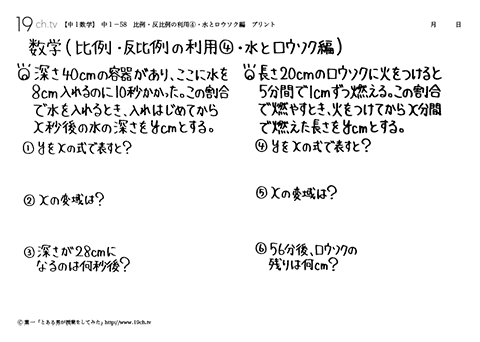 19ch.tv 【中1数学】 中1-58 比例・反比例の利用④・水とロウソク編 プリント 月 日
数学(比例・反比例の利用④・水とロウソク編)
Q 深さ40cmの容器があり、ここに水を
8cm入れるのに10秒かかった。この割合
で水を入れるとき、入れはじめてから
x秒後の水の深さをycmとする。
① yをxの式で表すと?
② xの変域は?
③ 深さが28cmに
なるのは何秒後?
Q 長さ20cmのロウソクに火をつけると
5分間で1cmずつ燃える。この割合
で燃やすとき、火をつけてからx分間
で燃えた長さをycmとする。
④ yをxの式で表すと?
⑤ xの変域は?
⑥ 56分後、ロウソクの
残りは何cm?
Ⓒ葉一「とある男が授業をしてみた」http://www.19ch.tv